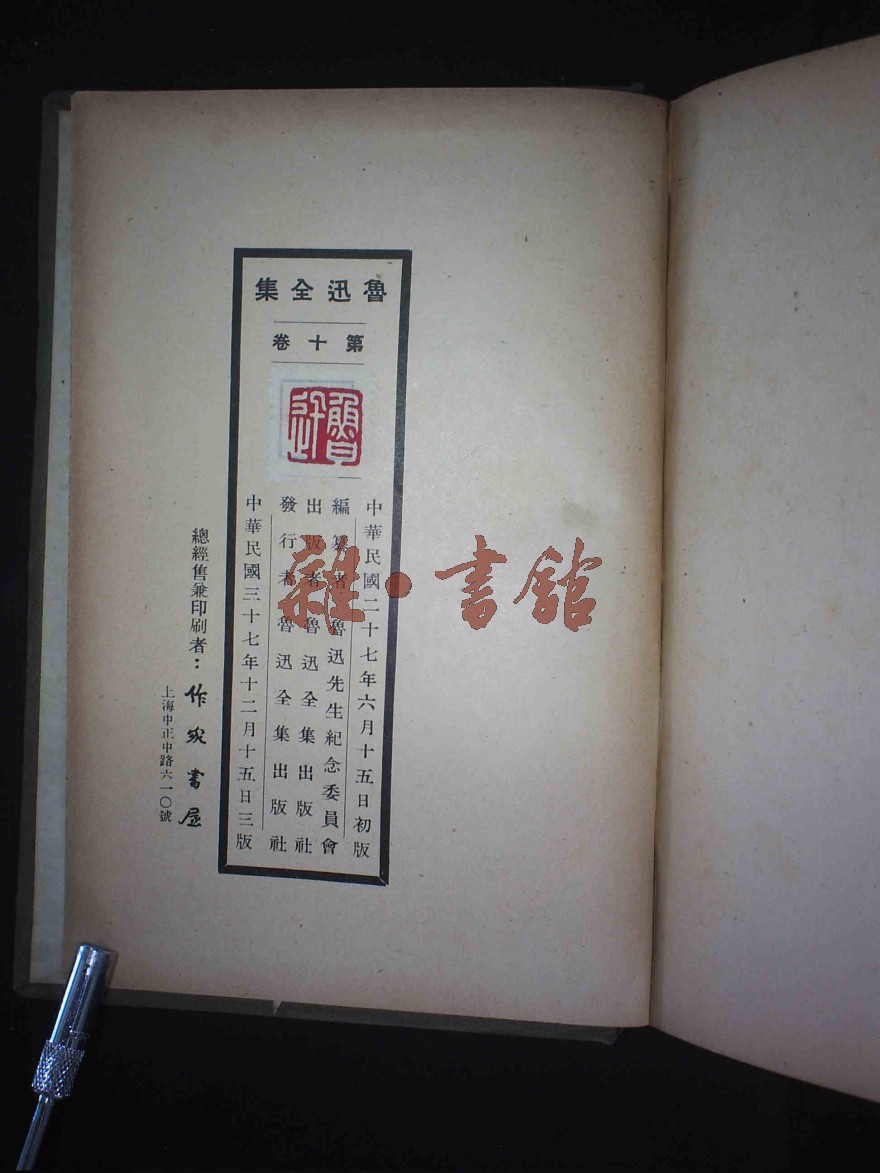 魯迅全集
第十卷
魯迅
中華民國二十七年六月十五日初版
編纂者魯迅先生紀念委員會
出版者魯迅全集出版社
發行者魯迅全集出版社
中華民國三十七年十二月十五日三版
總經售兼印刷者：作家書屋
上海中正中路六一〇號
雜·書館